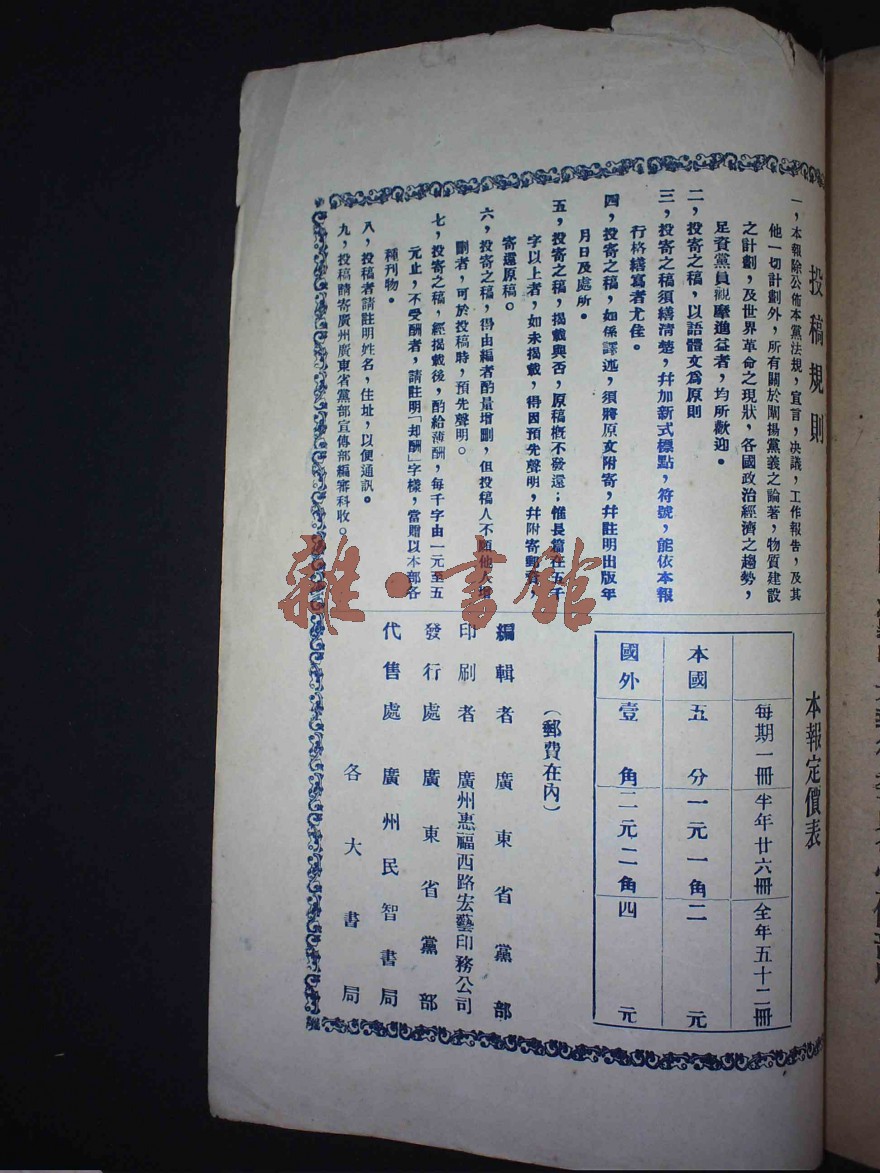 投稿規則
一，本報除公佈本黨法規，宣言，决議，工作報告，及其
他一切計劃外，所有關於闡揚黨義之論著，物質建設
之計劃，及世界革命之現狀，各國政治經濟之趨勢，
足資黨員觀摩進益者，均所歡迎。
二，投寄之稿，以語體文爲原則
三，投寄之稿須繕清楚，幷加新式標點，符號，能依本報
行格繕寫者尤佳。
四，投寄之稿，如係譯述，須將原文附寄，幷註明出版年
月日及處所。
五，投寄之稿，揭載與否，原稿槪不發還；惟長篇在五千
字以上者，如未揭載，得因預先聲明，幷附寄郵
寄還原稿。
六，投寄之稿，得由編者酌量增删，但投稿人不願他人增
删者，可於投稿時，預先聲明。
七，投寄之稿，經揭載後，酌給薄酬，每千字由一元至五
元止，不受酬者，請註明「却酬」字樣，當贈以本部各
種刊物。
八，投稿者請註明姓名，住址，以便通訊。
九，投稿請寄廣州廣東省黨部宣傳部編審科收。
本報定價表
每期一冊 半年廿六冊 全年五十二冊
本國 五分 一元一角 二元
國外 壹角 二元二角 四元
（郵費在內）
編輯者 廣東省黨部
印刷者 廣州惠福西路宏藝印務公司
發行處 廣東省黨部
代售處 廣州民智書局
各大書局
雜·書館